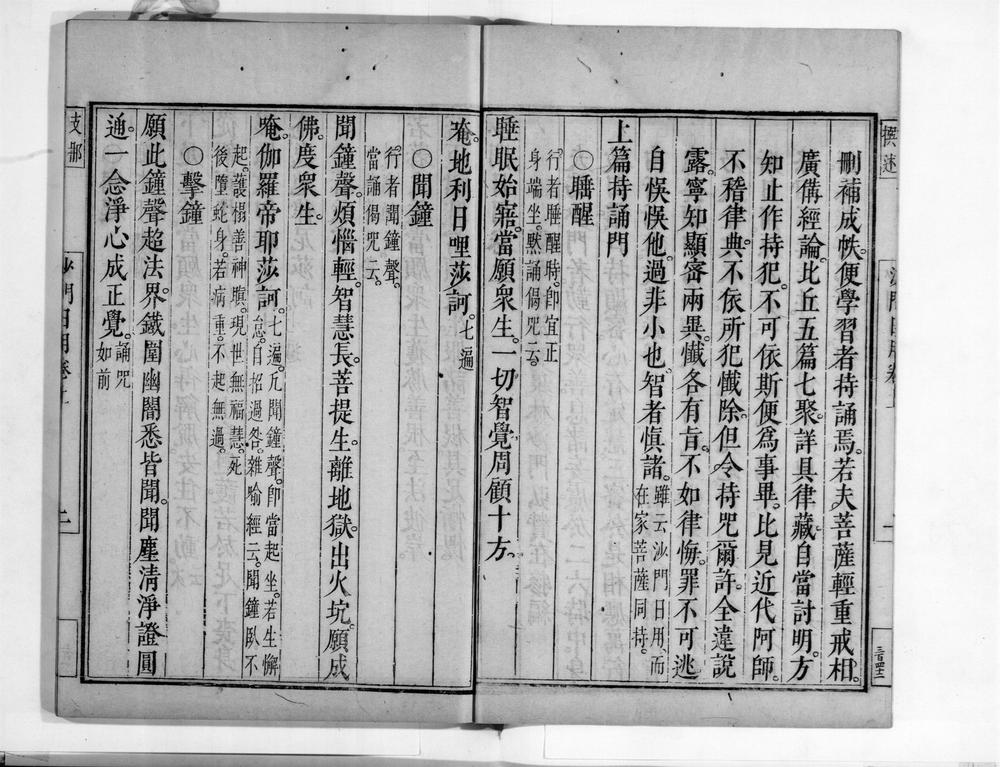 撰述
刪補成帙。便學習者持誦焉。若夫菩薩輕重戒相。
廣備經論。比丘五篇七聚。詳具律藏。自當討明。方
知止作持犯。不可依斯便為事畢。比見近代阿師。
不稽律典。不依所犯懺除。但令持咒爾許。全違說
露。寧知顯密兩異。懺各有旨。不如律悔。罪不可逃
自悞悞他。過非小也。智者慎諸。雖云沙門日用。而
在家菩薩同持。
上篇持誦門
〇睡醒
行者睡醒時。即宜正
身端坐。默誦偈咒云。
睡眠始寤。當願眾生。一切智覺。周顧十方。
唵。地利日哩莎訶。七遍
〇聞鐘
行者聞鐘聲。
當誦偈咒云。
聞鐘聲。煩惱輕。智慧長。菩提生。離地獄。出火坑。願成
佛。度眾生。
唵。伽羅帝耶莎訶。七遍。凡聞鐘聲。即當起坐。若生懈
怠。自招過咎。雜喻經云。聞鐘臥不
起。護榻善神瞋。現世無福慧。死
後墮蛇身。若病重。不起無過。
〇擊鐘
願此鐘聲超法界。鐵圍幽闇悉皆聞。聞塵清淨證圓
通。一念淨心成正覺。誦咒
如前
支那
沙門日用卷上
二